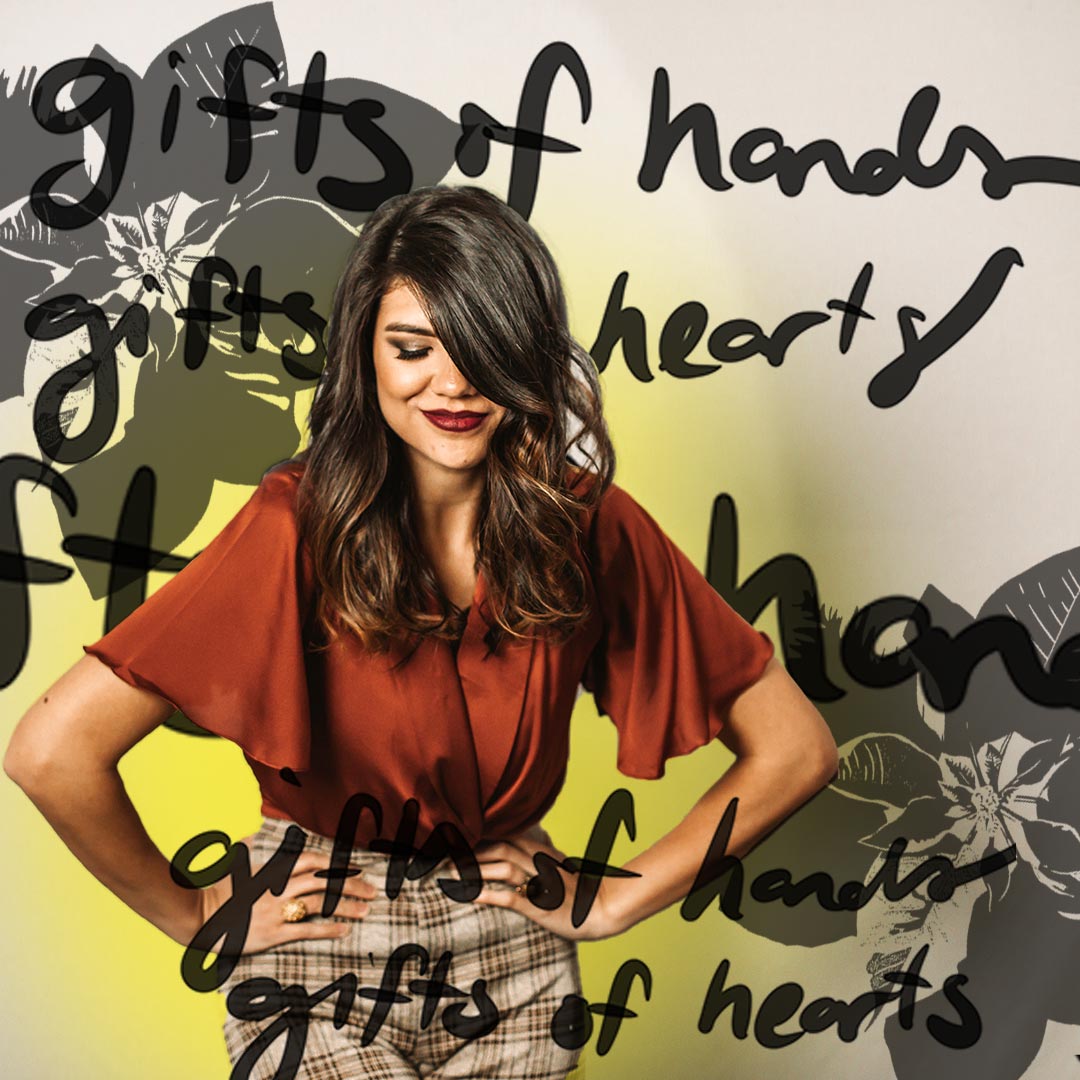 gifts of hands
gifts hearts
ft hand
gifts of hands
gifts of hearts